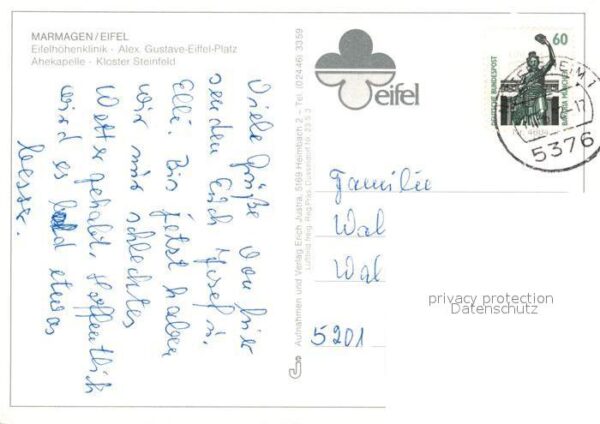 MARMAGEN/EIFEL
Eifelhöhenklinik - Alex. Gustave-Eiffel-Platz
Ahekapelle - Kloster Steinfeld
Viele Grüße von hier
senden Euch Josef u.
Elli. Bis jetzt haben
wir nur schlechtes
Wetter gehabt. Hoffentlich
wird es bald etwas
besser.
Aufnahmen und Verlag Erich Justra, 5169 Heimbach 2 - Tel. (02446) 3359
eifel
60
DEUTSCHE BUNDESPOST
BAVARIA MÜNCHEN
17
5376
Familie
Wal
Wal
5201
privacy protection
Datenschutz